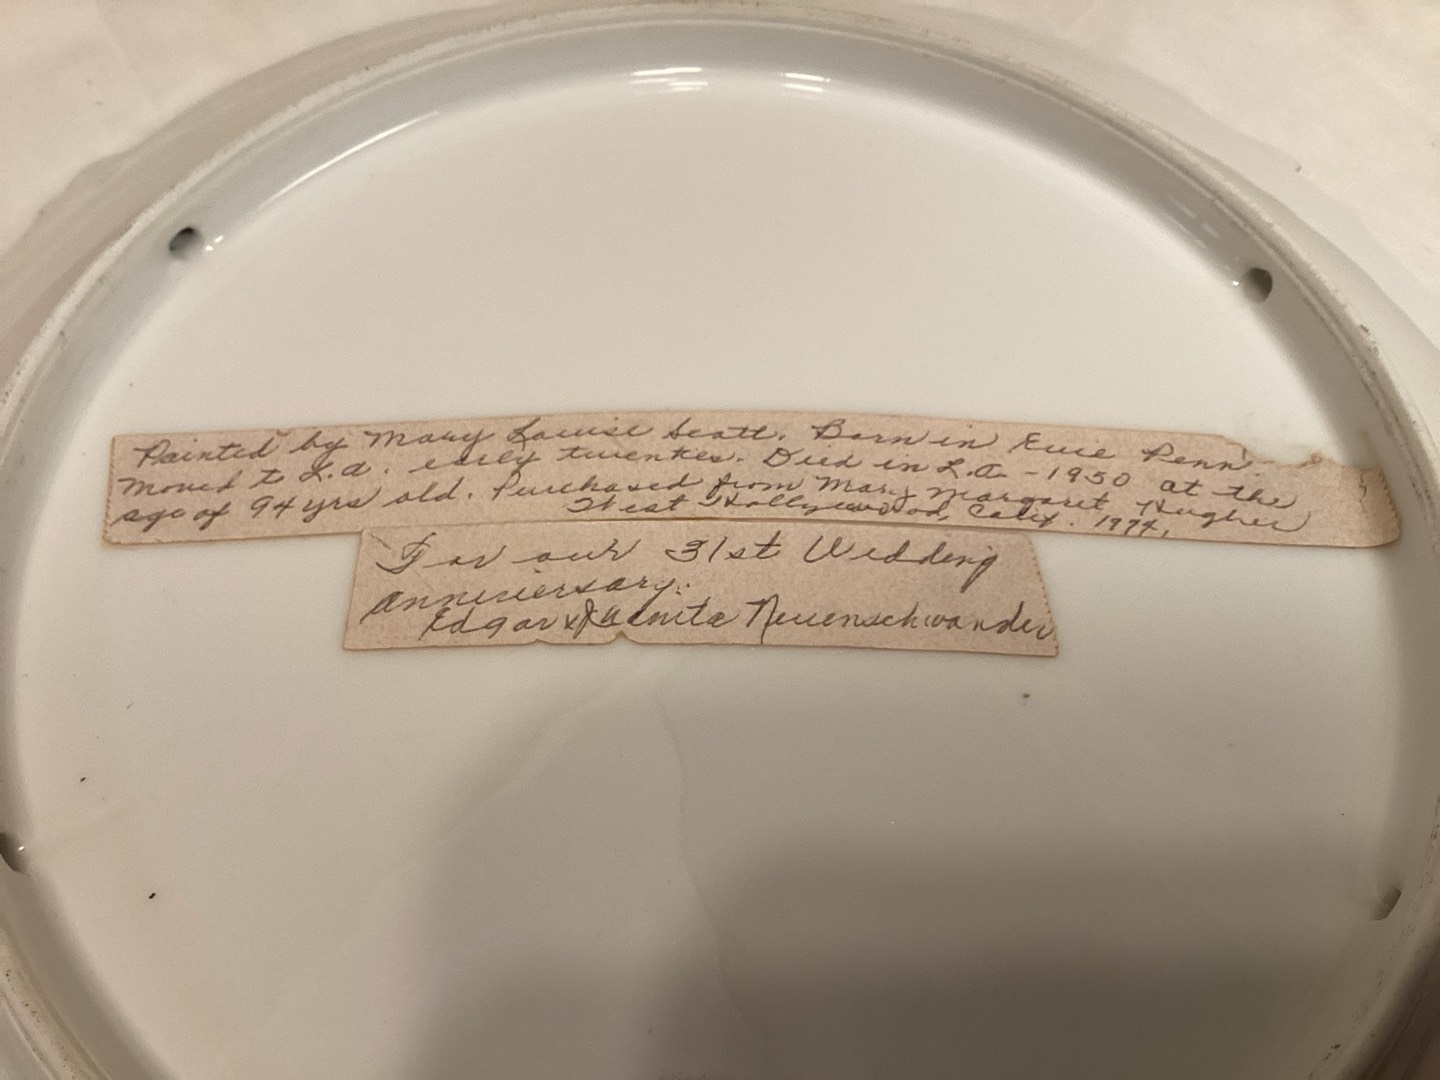 Painted by Mary Louise Scott. Born in Erie Penn
moved to L.A. early twenties. Died in L.A. - 1950 at the
age of 94 yrs old. Purchased from Mary Margaret Hughes
West Hollywood, Calif. 1974.
For our 31st Wedding
anniversary.
Edgar & Juanita Neuenschwander